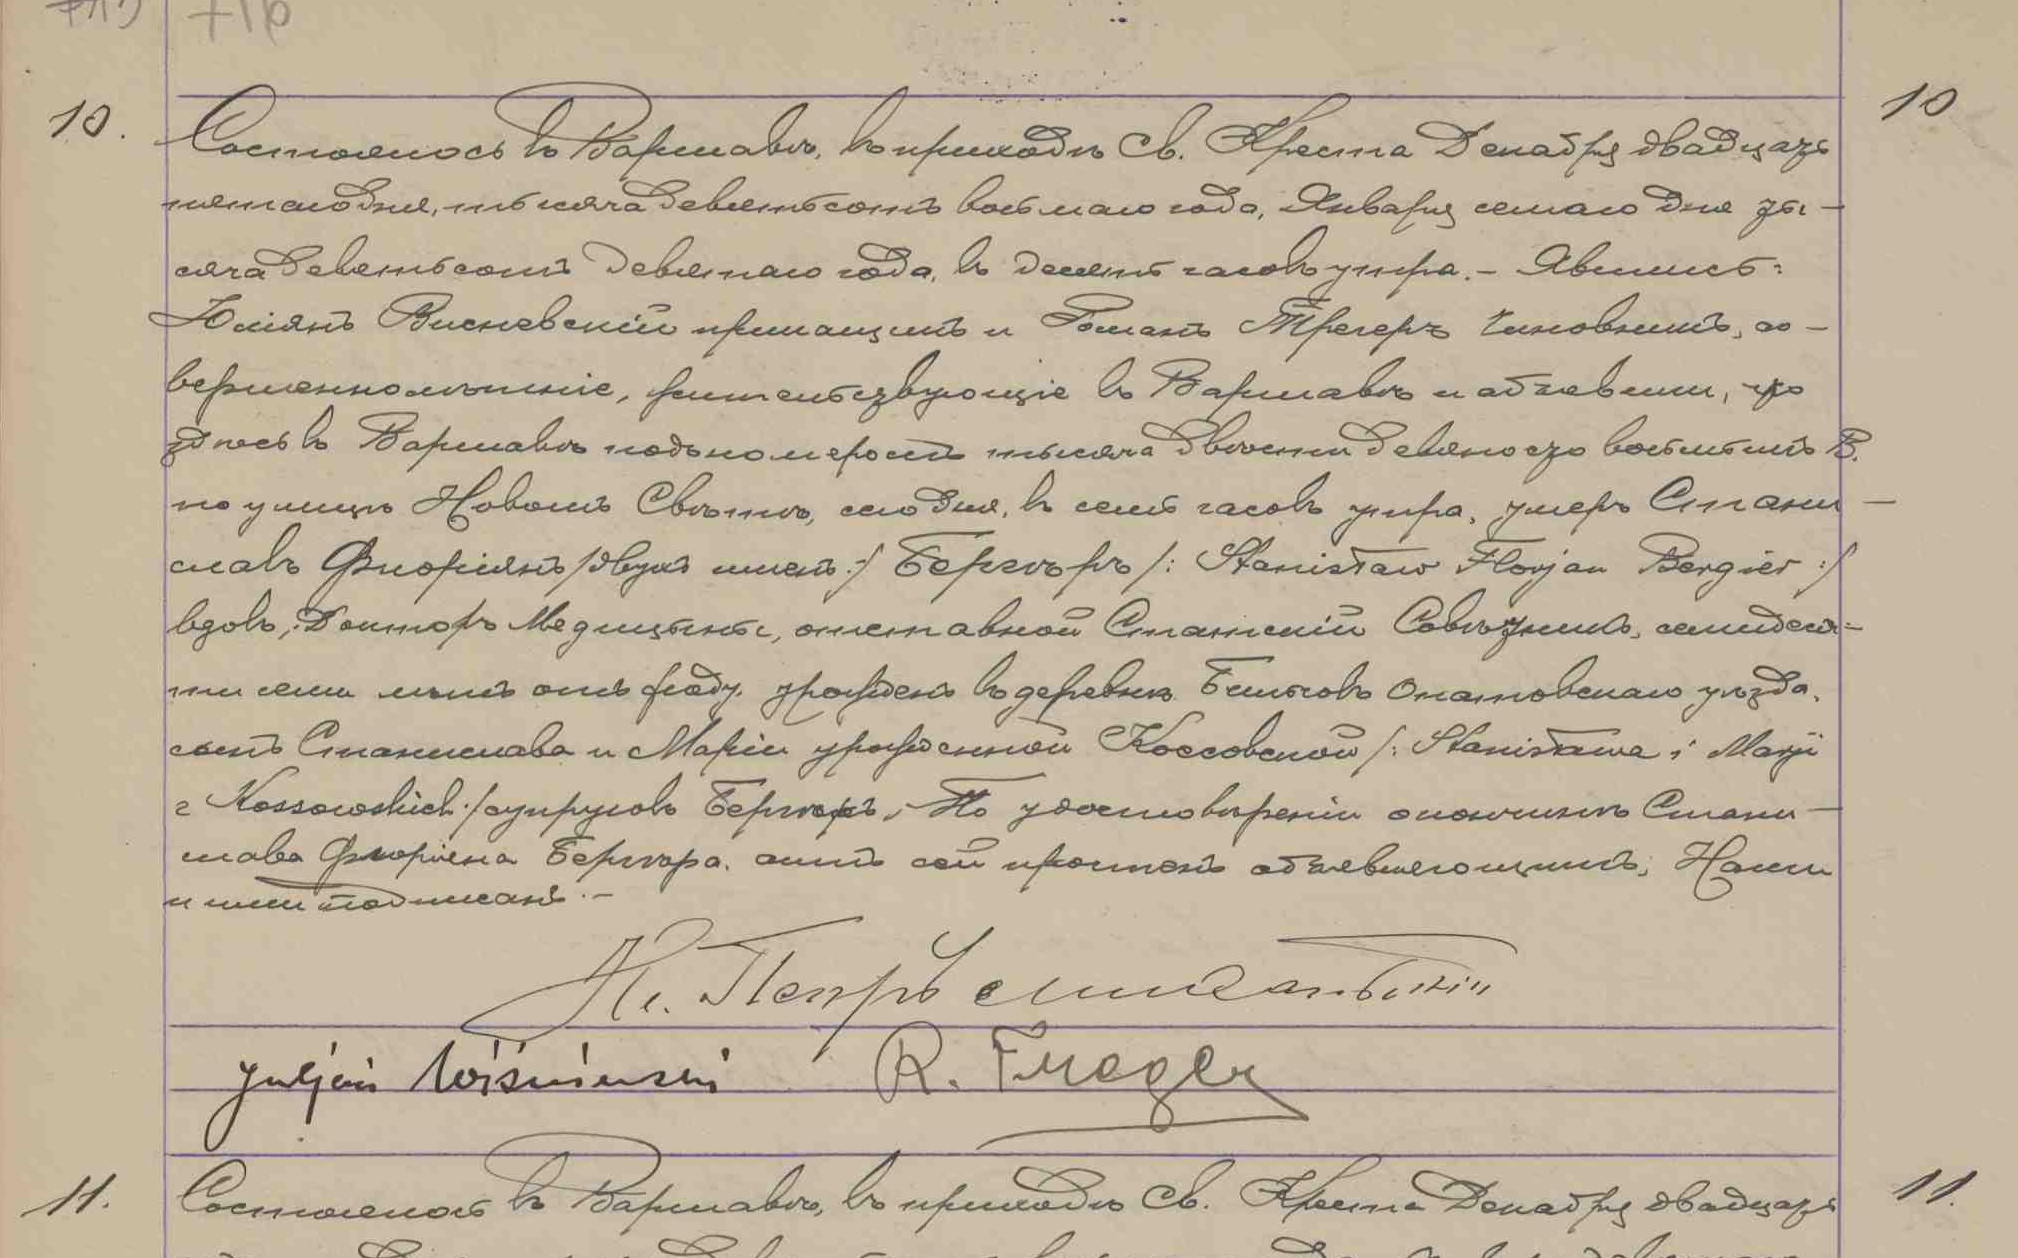 10.
10
Состоялось въ Варшавѣ, въ приходѣ Св. Креста Декабря двадцать
пятаго дня, тысяча девятьсотъ восьмаго года, Января седьмаго дня ты-
сяча девятьсотъ девятаго года, въ десять часовъ утра. - Явились:
Юліянъ Висневскій прикащикъ и Романъ Трегеръ чиновникъ, со-
вершеннолѣтніе, жительствующіе въ Варшавѣ и объявили, что
здѣсь въ Варшавѣ подъ номеромъ тысяча двѣсти девяносто восьмымъ В.
по улицѣ Новомъ Свѣтѣ, сего дня, въ семь часовъ утра, умеръ Стани-
славъ Флоріянъ /двухъ именъ:/ Бергѣръ /: Stanisław Florjan Bergier :/
вдовъ, Докторъ Медицины, отставной Статскій Совѣтникъ, семидеся-
ти семи лѣтъ отъ роду, урожденъ въ деревнѣ Опатовскаго уѣзда,
сынъ Станислава и Маріи урожденной Коссовской /: Stanisława i Maryi
z Kossowskich :/ супруговъ Бергѣръ. По удостовѣреніи о кончинѣ Стани-
слава Флоріяна Бергѣра, актъ сей прочтенъ объявляющимъ, Нами
и ими подписанъ. -
Кс. Петръ
Juljan Wiśniewski R. Treger
11.
11.
Состоялось въ Варшавѣ, въ приходѣ Св. Креста Декабря двадцать